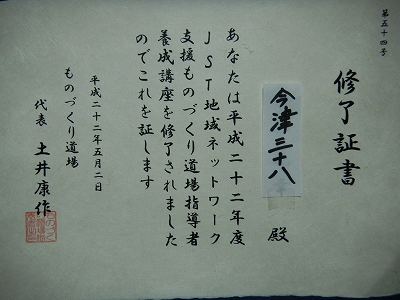 第五十四号
修了証書
今津三十八 殿
あなたは平成二十二年度
JST地域ネットワーク
支援ものづくり道場指導者
養成講座を修了されました
のでこれを証します
平成二十二年五月二日
ものづくり道場
代表 土井康作